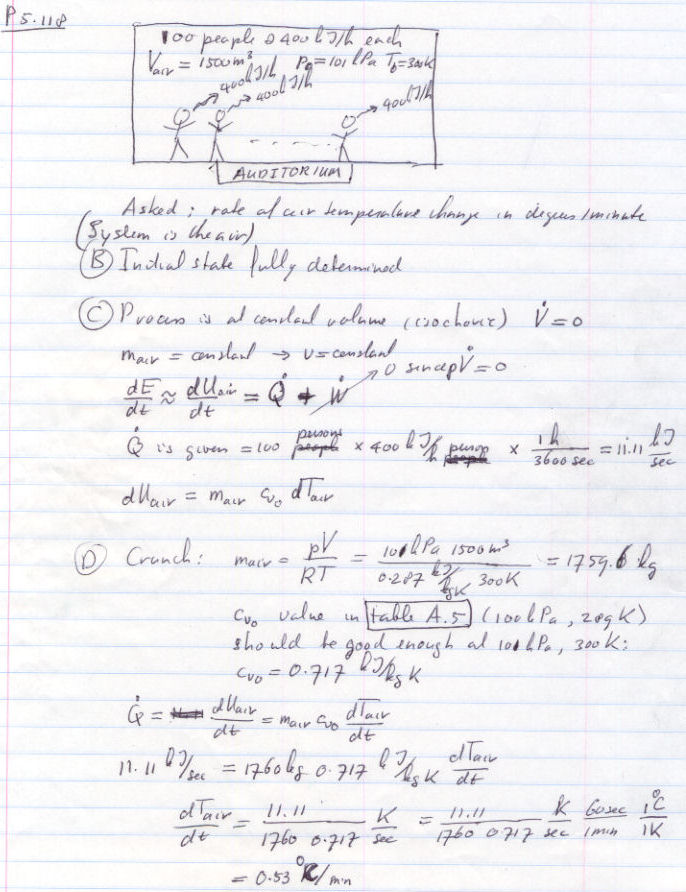 P 5.118
100 people @ 400 kJ/h each
Vair = 1500 m³ P0 = 101 kPa T0 = 300K
400kJ/h
400kJ/h
400kJ/h
AUDITORIUM
Asked: rate of air temperature change in degrees/minute
(System is the air)
(B) Initial state fully determined
(C) Process is at constant volume (isochoric) V̇ = 0
mair = constant → v = constant
dE/dt ≈ dUair/dt = Q̇ + Ẇ 0 since pV̇ = 0
Q̇ is given = 100 persons × 400 kJ/h person × 1h/3600 sec = 11.11 kJ/sec
dUair = mair cv0 dTair
(D) Crunch: mair = pV/RT = 101kPa 1500m³ / 0.287 kJ/kgK 300K = 1759.6 kg
cv0 value in table A.5 (100kPa, 298K)
should be good enough at 101 kPa, 300K:
cv0 = 0.717 kJ/kg K
Q̇ = dUair/dt = mair cv0 dTair/dt
11.11 kJ/sec = 1760kg 0.717 kJ/kg K dTair/dt
dTair/dt = 11.11 / 1760 0.717 K/sec = 11.11 / 1760 0.717 K/sec 60sec/1min 1°C/1K
= 0.53 °C/min